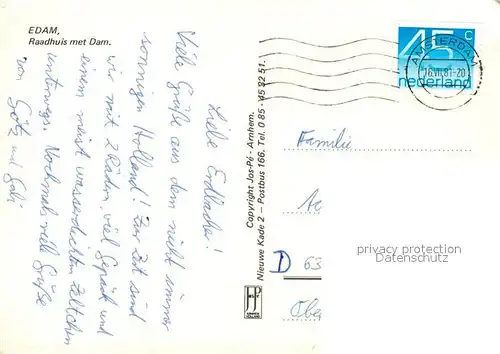 EDAM,
Raadhuis met Dam.
Liebe Erdbachs!
Viele Grüße aus dem nicht immer
sonnigen Holland! Zur Zeit sind
wir mit 2 Rädern, viel Spaß und
einem meist wasserdichten Zeltchen
unterwegs. Nochmals viele Grüße
von Götz und Gabi
Copyright Jos-Pé - Arnhem.
Nieuwe Kade 2 – Postbus 166. Tel. 0 85 - 45 32 51.
JP
45 c
nederland
AMSTERDAM
16.VII.81-20
Familie
D 63
Obe
privacy protection
Datenschutz